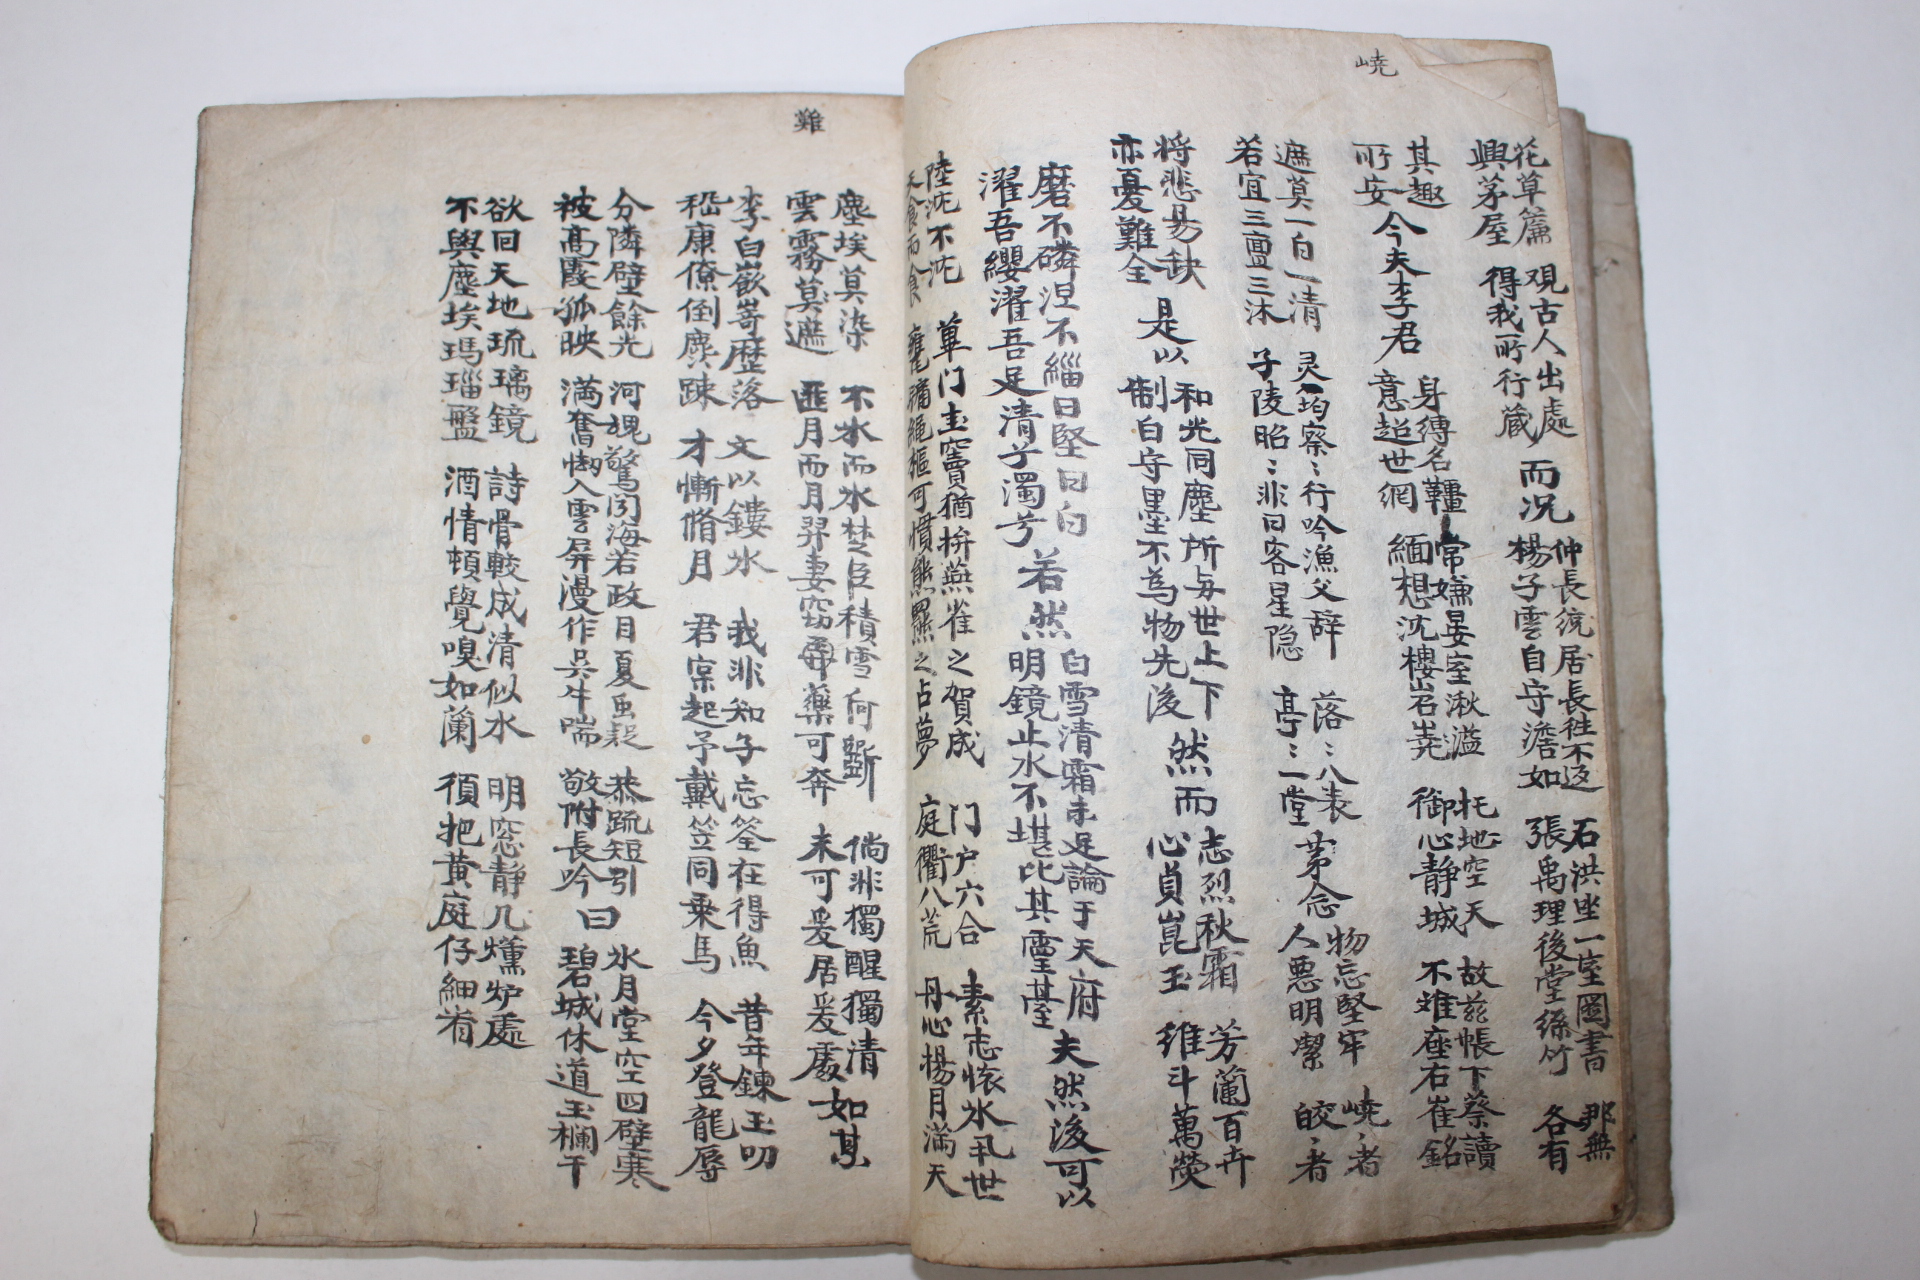 嶢
花草簾 觀古人出處 而況 仲長統居長往不返 石洪坐一室圖書 那無
興茅屋 得我所行藏 楊子雲自守澹如 張禹理後堂絲竹 各有
其趣 今夫李君 身縛名韁 常嫌晏室湫溢 托地空天 故茲帳下蔡讀
所安 意超世網 緬想沈樓岧嶤 御心静城 不难座右崔銘
遮莫一白一清 灵均察〻行吟漁父辞 落〻八表 第念 物忘堅牢 嶢〻者
若宜三亶三沐 子陵昭〻非曰客星隐 亭〻一堂 人悪明潔 皎〻者
将悲易缺 是以 和光同塵所与世上下 然而 志烈秋霜 芳蘭百卉
亦憂難全 制白守墨不為物先後 心貞崑玉 維斗萬熒
磨不磷涅不緇曰堅曰白 若然 白雪清霜未足論于天府 夫然後可以
濯吾纓濯吾足清兮濁兮 明鏡止水不堪比其霊䑓
陸沈不沈 蓽门圭竇猶拚燕雀之賀成 门户六合 素志懐氷世
天食而食 甕牖繩樞可慣熊羆之占夢 庭衢八荒 丹心楊月満天
難
塵埃莫染 不氷而氷楚臣積雪何斵 倘非獨醒獨清 如某
雲霧莫遮 匪月而月羿妻窃藥可奔 未可爰居爰處
李白嶔嵜歴落 文以鏤氷 我非知子忘筌在得魚 昔年鍊玉叨
嵇康僚倒麁踈 才慚脩月 君宲起予戴笠同乗馬 今夕登龍辱
分隣壁餘光 河規驚闵海若政目夏虫疑 恭䟽短引 氷月堂空四壁寒
被高霞孤映 満奮㘞入雲屏漫作吳牛喘 敬附長吟曰 碧城休道玉欄干
欲回天地琉璃鏡 詩骨較成清似水 明窓静几爐炉處
不與塵埃瑪瑙盤 酒情頓覺嗅如蘭 須把黄庭仔細看